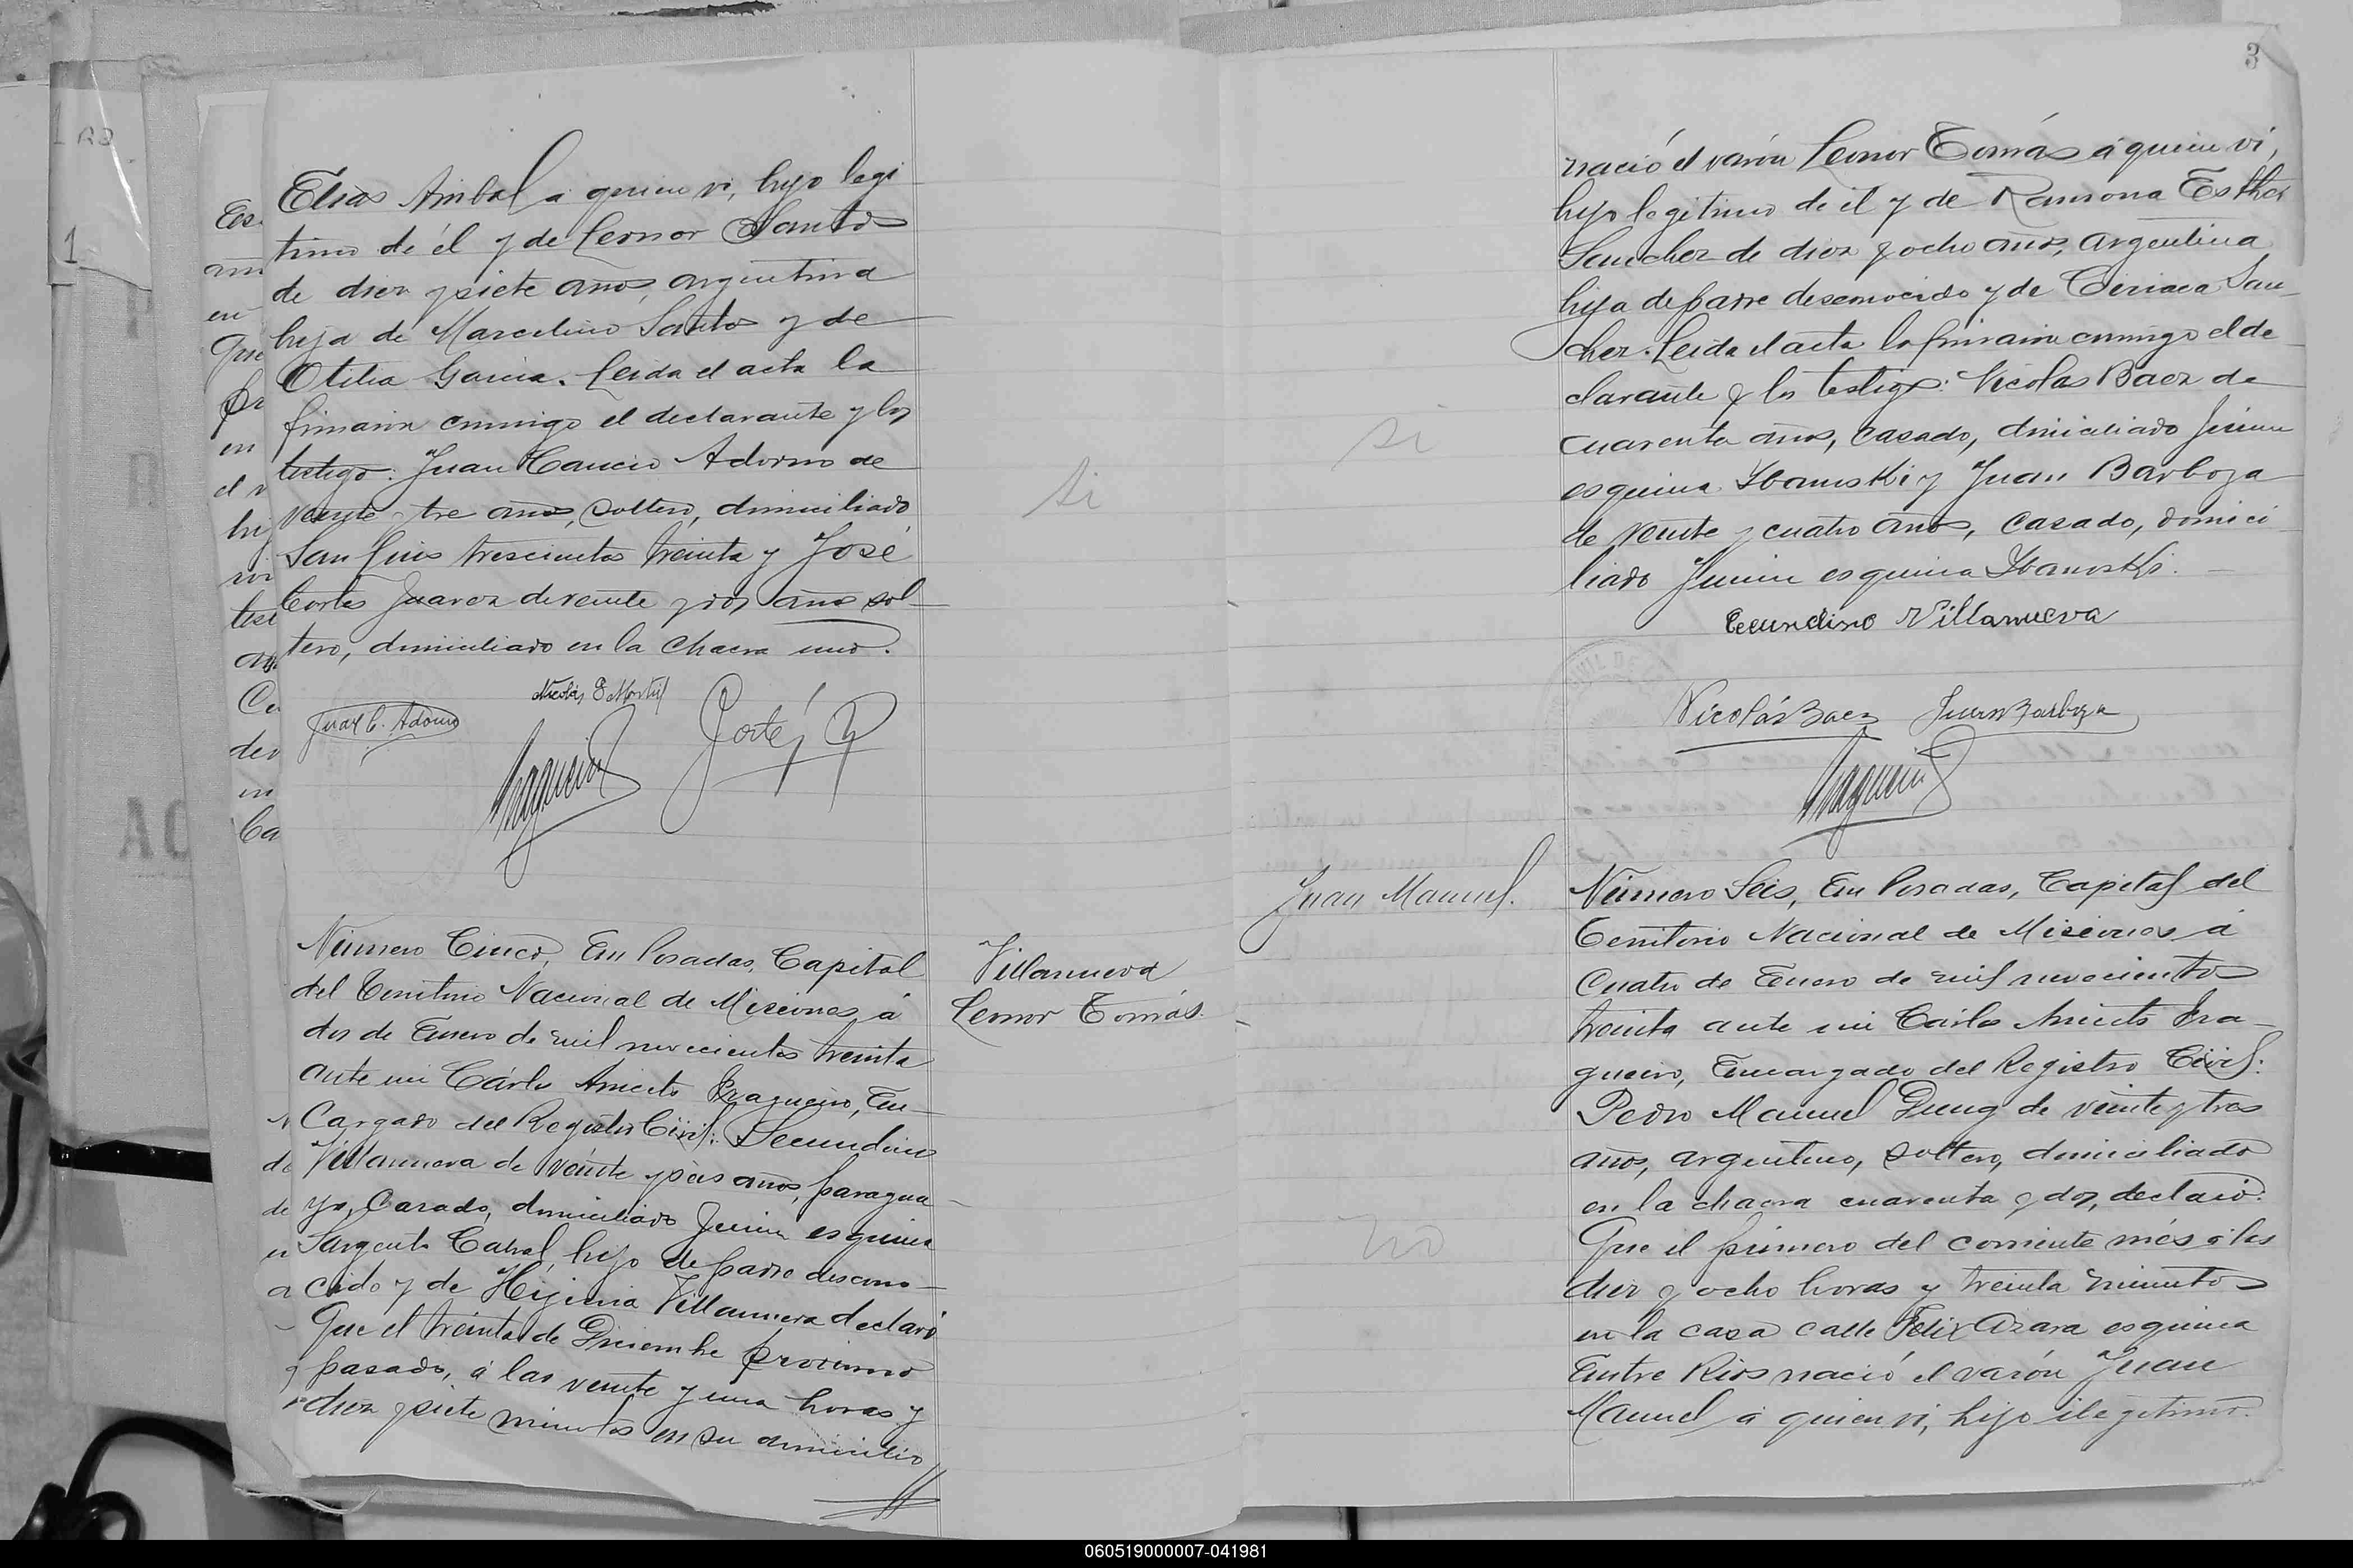 1 AB
1
3
Elias Anibal a quien vi, hijo legi
timo de él y de Leonor Santos
de diez y siete años, argentina
hija de Marcelino Santos y de
Otilia Garcia. Leida el acta la
firmaron conmigo el declarante y los
testigos: Juan Cancio Adorno de
veinte y tre años, soltero, domiciliado
San Luis trescientos treinta y José
Cortés Juarez de veinte y dos años sol-
tero, domiciliado en la Chacra uno.
Juan C. Adorno
Si
Número Cinco, En Posadas, Capital
del Territorio Nacional de Misiones á
dos de Enero de mil novecientos treinta
ante mi Cárlos Aniceto Fragueiro, En-
Cargado del Registro Civil: Secundino
Villanueva de veinte y seis años, paragua-
yo, Casado, domiciliado Junin esquina
Sargento Cabral, hijo de padre descono-
cido y de Hijinia Villanueva declaró
Que el treinta de Diciembre próximo
pasado, á las veinte y una horas y
diez y siete minutos en su domicilio
Villanueva
Leonor Tomás.
nació el varón Leonor Tomás á quien vi,
hijo legitimo de él y de Ramona Esther
Sanchez de diez y ocho años, argentina
hija de padre desconocido y de Ciriaca San-
chez. Leida el acta la firmaron conmigo el de-
clarante y los testigos: Nicolas Baez de
cuarenta años, casado, domiciliado Junin
esquina Ybanoski y Juan Barboza
de veinte y cuatro años, casado, domici
liado Junin esquina Ybanoski.
Secundino Villanueva
Nicolás Baez Juan Barboza
si
Juan Manuel.
Número Seis, En Posadas, Capital del
Territorio Nacional de Misiones á
Cuatro de Enero de mil novecientos
treinta ante mi Cárlos Aniceto Fra-
gueiro, Encargado del Registro Civil:
Pedro Manuel de veinte y tres
años, argentino, soltero, domiciliado
en la chacra cuarenta y dos, declaró:
Que el primero del corriente més á las
diez y ocho horas y treinta minutos
en la casa calle Felix Azara esquina
Entre Rios nació el varón Juan
Manuel á quien vi, hijo ilegitimo.
no
060519000007-041981